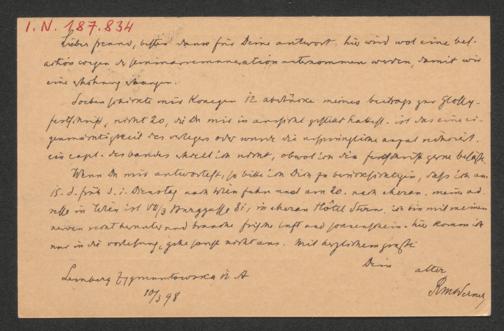 I.N. 187.834
Lieber freund, besten dank für Deine antwort. hier wird wol eine bes
action wegen der seminarremuneration unternommen werden, damit wir
eine erhöhung erlangen.
Soeben schickte mir Konegen 12 abdrücke meines beitrags zur
festschrift, nicht 20, die Du mir in aussicht gestellt hattest. ist das eine ei
genmächtigkeit des verlegers oder wurde die ursprüngliche anzal reduciert.
ein expl. des bandes erhielt ich nicht, obwol ich die festschrift gerne besäße.
Wenn Du mir antwortest, so bitte ich Dich zu berücksichtigen, dass ich am
15. d. früh d. i. Dienstag nach Wien fahre und am 20. nach Meran. meine ad
resse in Wien ist VII/3 Burggasse 81, in Meran Hôtel Stern. ich bin mit meinen
nerven recht herunter und brauche frische luft und sonnenschein. hier komm ich
nur in die vorlesung, gehe sonst nicht aus. Mit herzlichem gruße
Dein alter
RMWerner
Lemberg Zygmuntowska
10/3 98